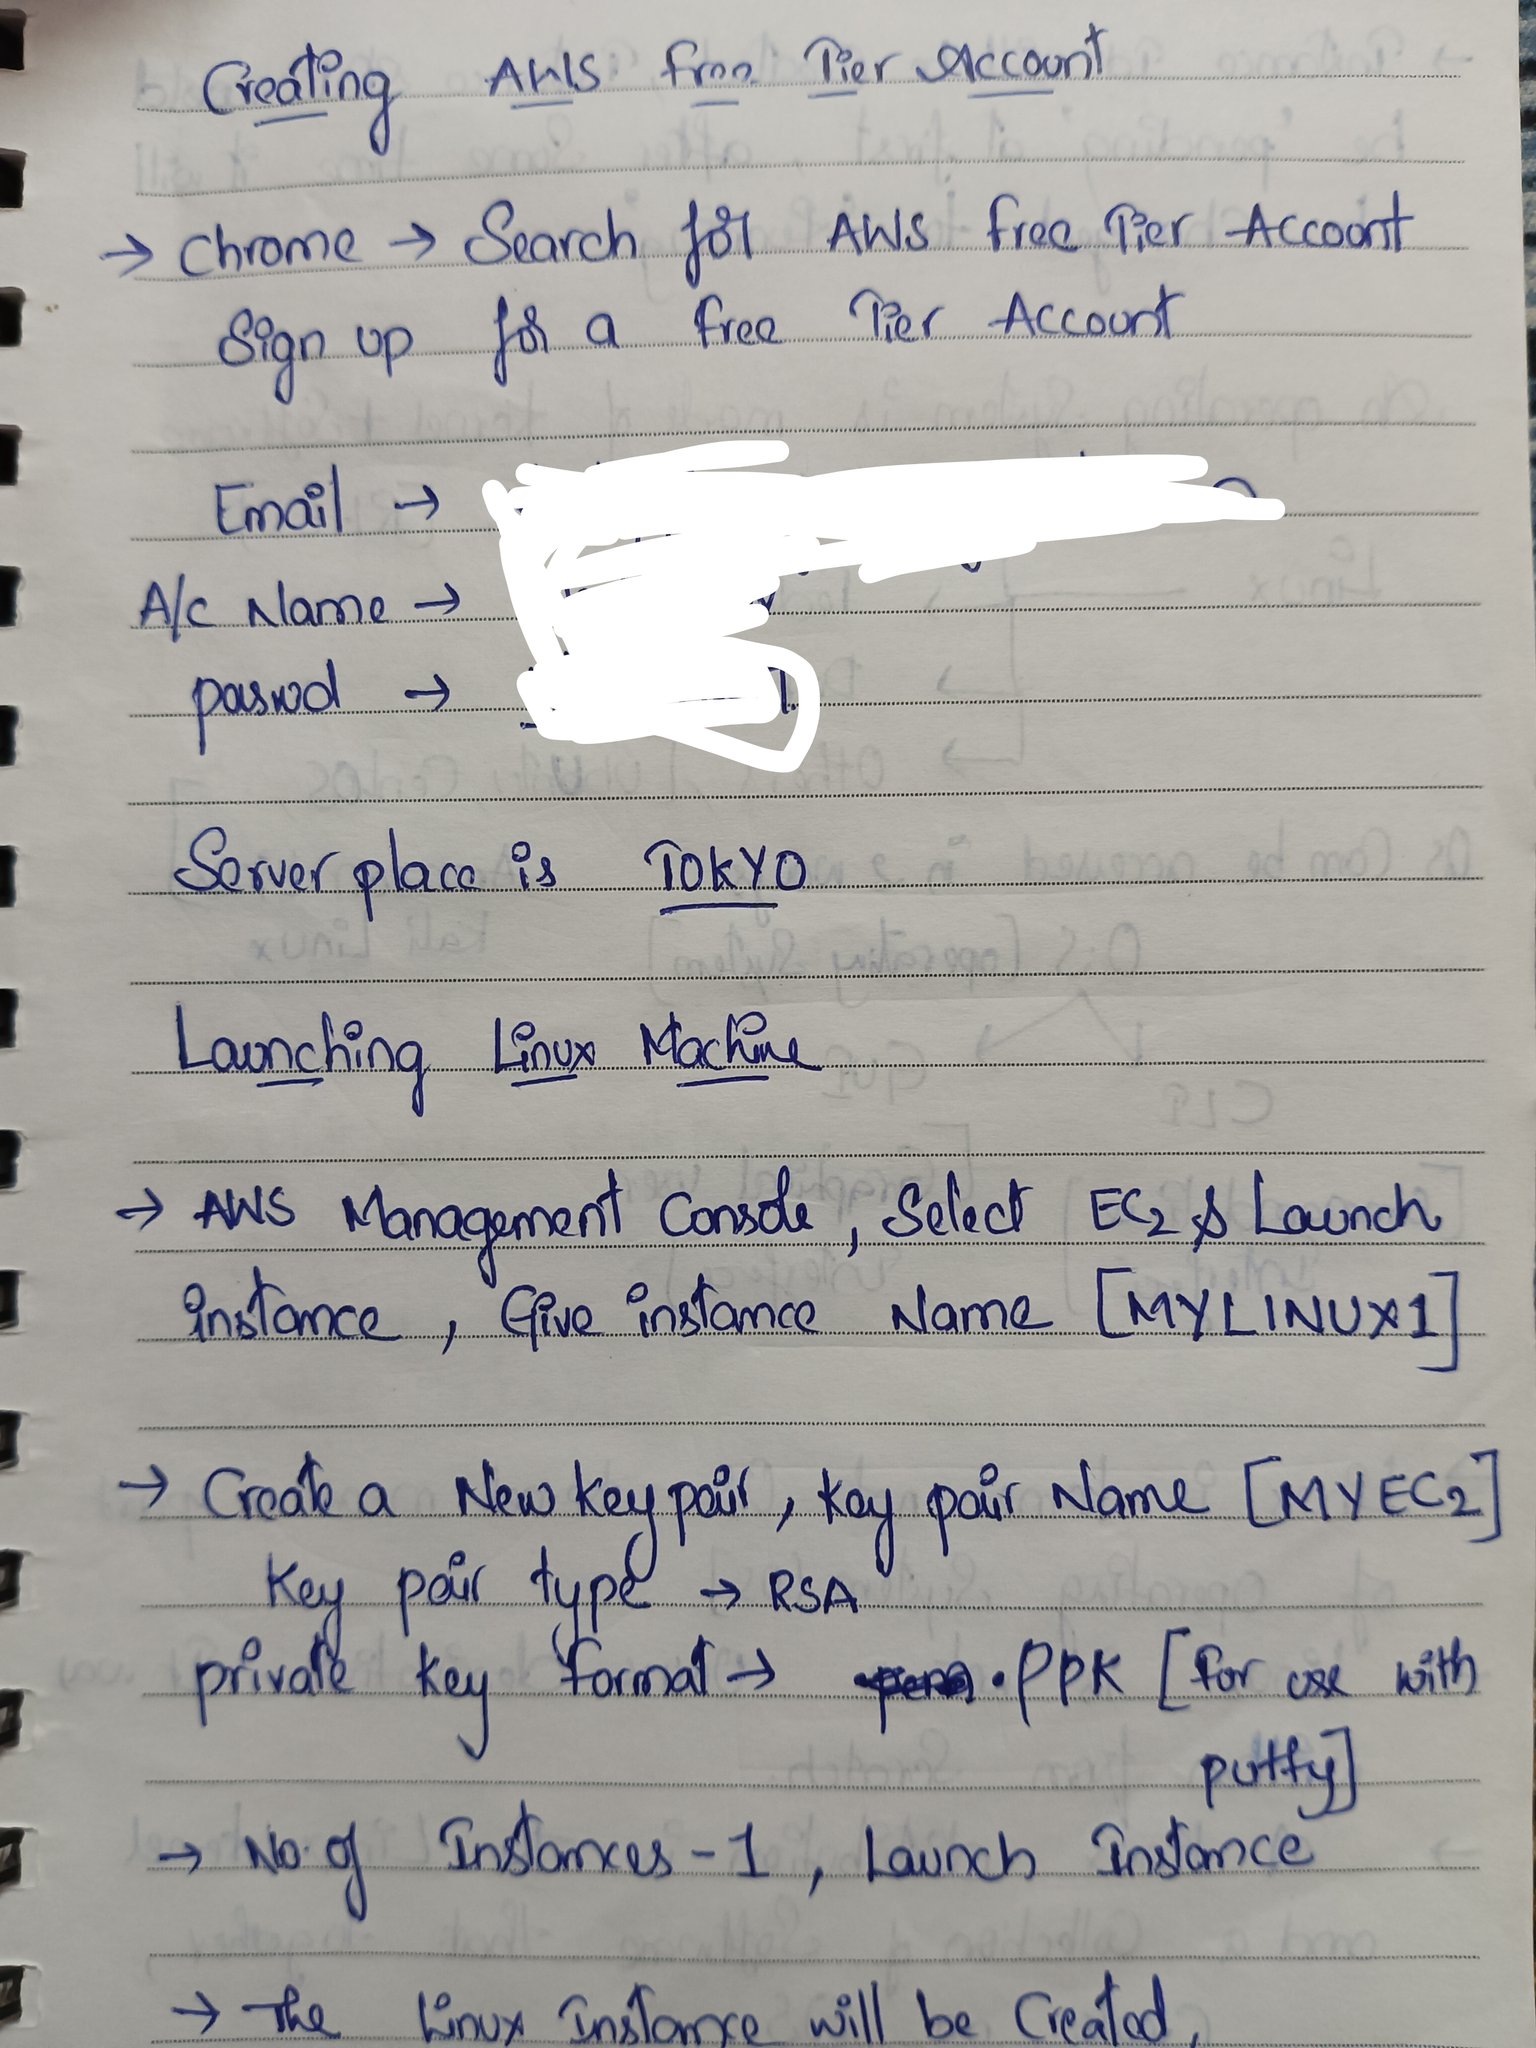 Creating AWS free Tier Account
→ Chrome → Search for AWS free Tier Account
Sign up for a free Tier Account
Email →
A/c Name →
paswd →
Server place is TOKYO
Launching Linux Machine
→ AWS Management Console, Select EC2 & Launch
instance, Give instance Name [MYLINUX1]
→ Create a New key pair, key pair Name [MYEC2]
Key pair type → RSA
private key format → .PPK [for use with
putty]
→ No. of Instances - 1, Launch Instance
→ The Linux Instance will be Created,